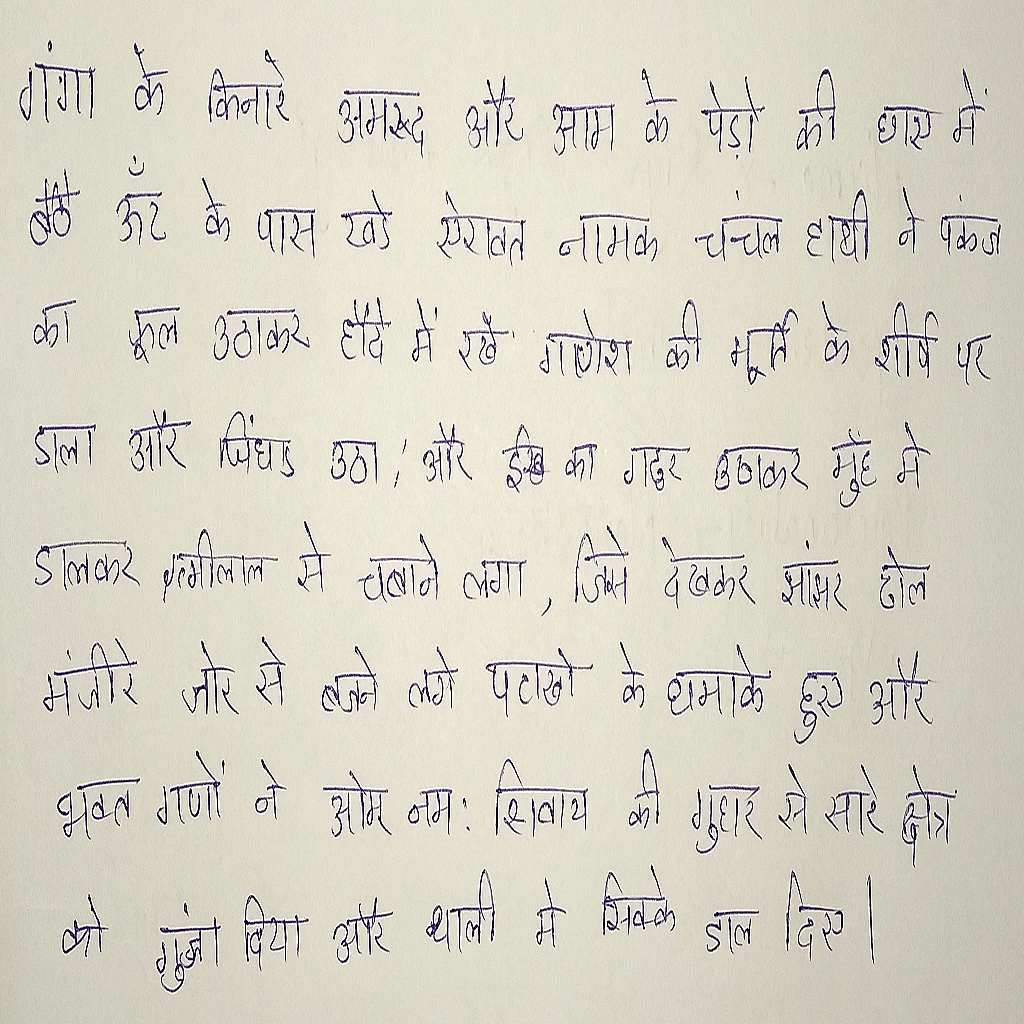 गंगा के किनारे अमरूद और आम के पेड़ो की छाए में
बैठे ऊँट के पास खडे ऐरावत नामक चंचल हाथी ने पंकज
का फूल उठाकर हौदे में रखे गणेश की मूर्ति के शीर्ष पर
डाला और चिंघाड उठा, और ईख का गट्ठर उठाकर मुँह मे
डालकर इत्मीलाल से चबाने लगा, जिसे देखकर झांझर ढोल
मंजीरे जोर से बजने लगे पटाखो के धमाके हुए और
भक्त गणों ने ओम नमः शिवाय की गुहार से सारे क्षेत्र
को गुंजा दिया और थाली मे सिक्के डाल दिए।